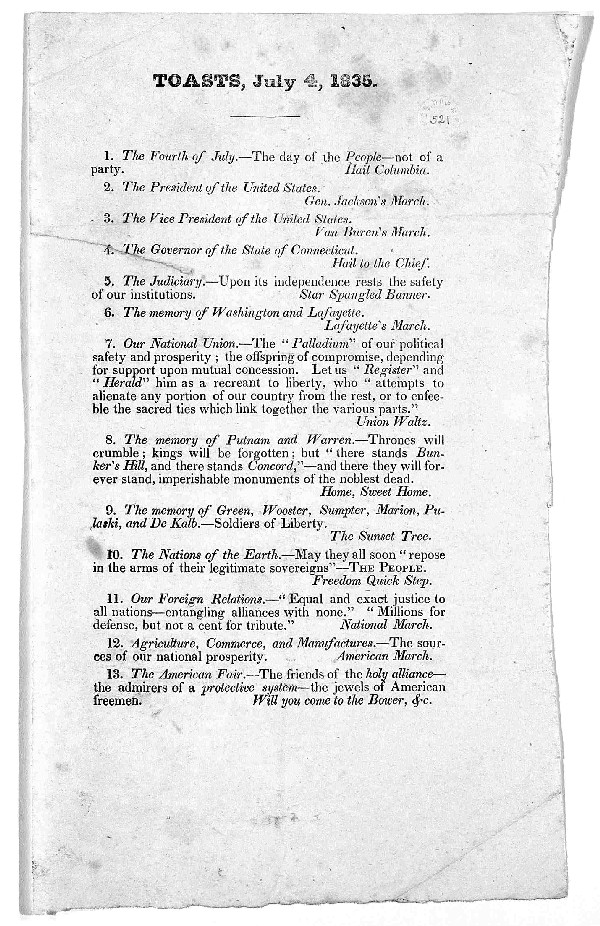 TOASTS, July 4, 1835.
521
1. The Fourth of July.—The day of the People—not of a
party. Hail Columbia.
2. The President of the United States.
Gen. Jackson's March.
3. The Vice President of the United States.
Van Buren's March.
4. The Governor of the State of Connecticut.
Hail to the Chief.
5. The Judiciary.—Upon its independence rests the safety
of our institutions. Star Spangled Banner.
6. The memory of Washington and Lafayette.
Lafayette's March.
7. Our National Union.—The "Palladium" of our political
safety and prosperity; the offspring of compromise, depending
for support upon mutual concession. Let us "Register" and
"Herald" him as a recreant to liberty, who "attempts to
alienate any portion of our country from the rest, or to enfee-
ble the sacred ties which link together the various parts."
Union Waltz.
8. The memory of Putnam and Warren.—Thrones will
crumble; kings will be forgotten; but "there stands Bun-
ker's Hill, and there stands Concord,"—and there they will for-
ever stand, imperishable monuments of the noblest dead.
Home, Sweet Home.
9. The memory of Green, Wooster, Sumpter, Marion, Pu-
laski, and De Kalb.—Soldiers of Liberty.
The Sunset Tree.
10. The Nations of the Earth.—May they all soon "repose
in the arms of their legitimate sovereigns"—THE PEOPLE.
Freedom Quick Step.
11. Our Foreign Relations.—"Equal and exact justice to
all nations—entangling alliances with none." "Millions for
defense, but not a cent for tribute." National March.
12. Agriculture, Commerce, and Manufactures.—The sour-
ces of our national prosperity. American March.
13. The American Fair.—The friends of the holy alliance—
the admirers of a protective system—the jewels of American
freemen. Will you come to the Bower, &c.